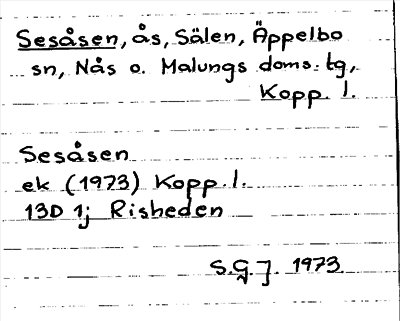 Sesåsen, ås, Sälen, Äppelbo
sn, Nås o. Malungs doms. tg,
Kopp. l.
Sesåsen
ek (1973) Kopp. l.
13D 1j Risheden
S.G.J. 1973